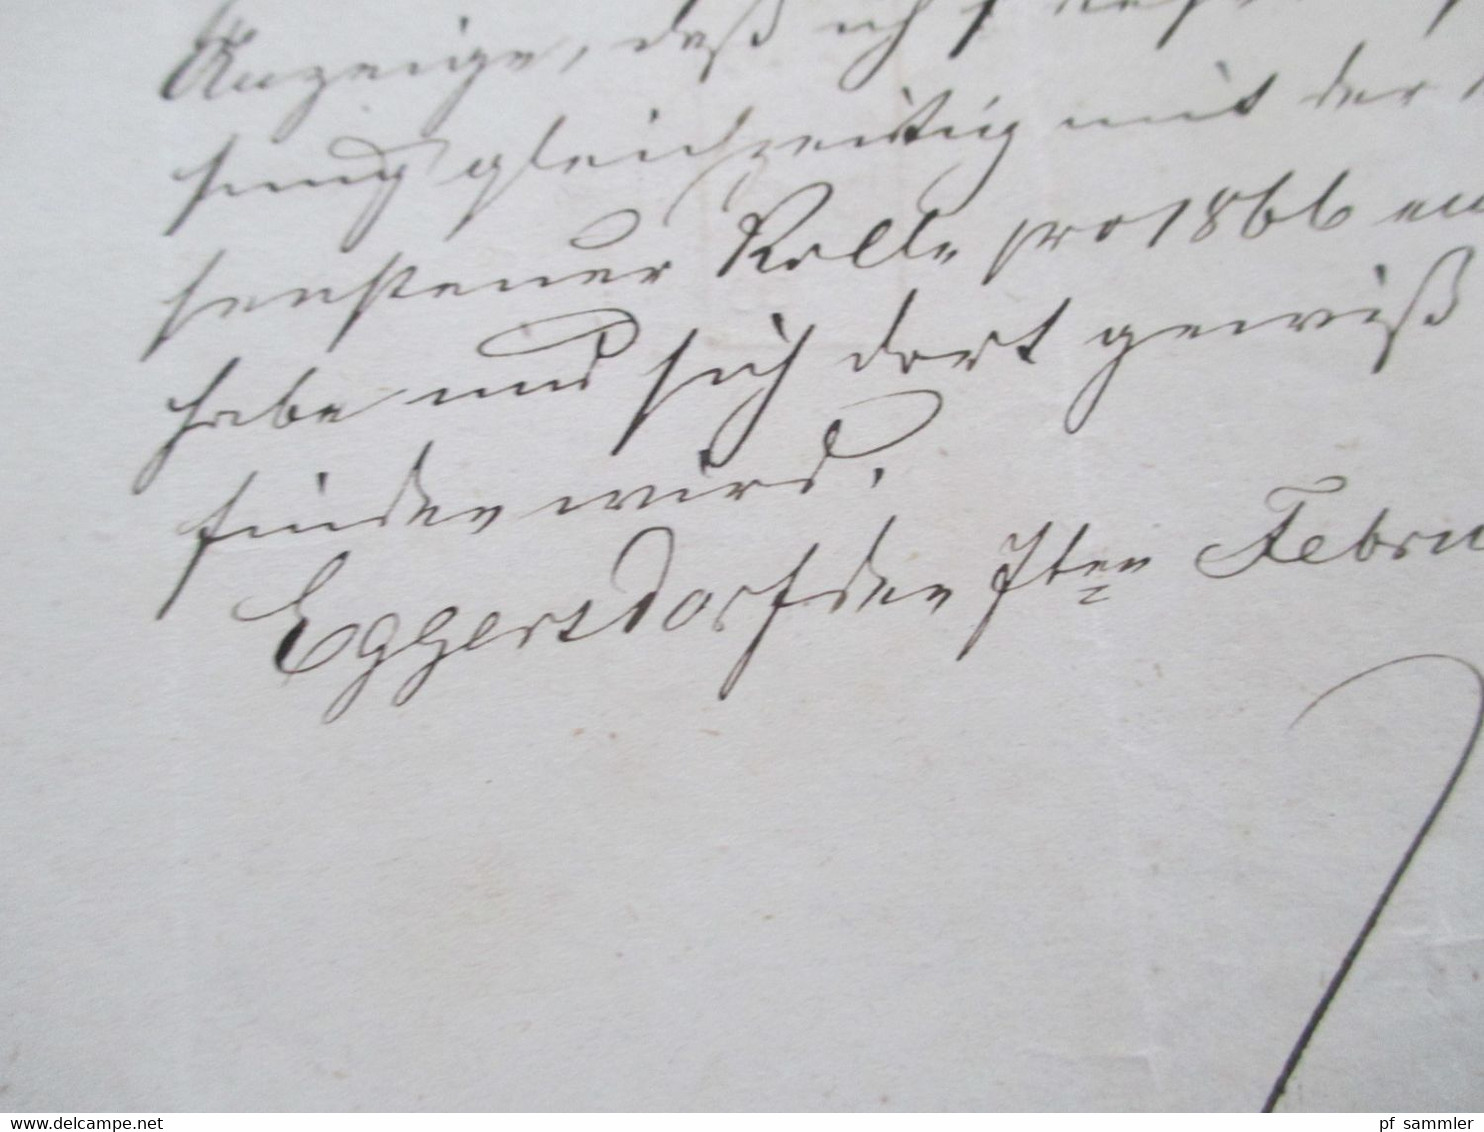 Anzeige, daß ich
sung gleichzeitig mit der
sensteuer Rolle pro 1866 ein
habe und sich dort gewiß
finden wird.
Eggersdorf den 7ten Febru
www.delcampe.net
pf_sammler